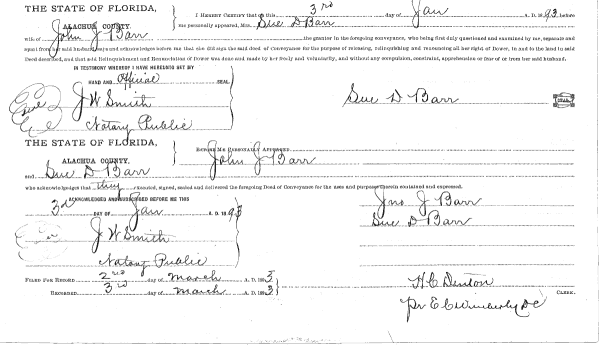 THE STATE OF FLORIDA,
ALACHUA COUNTY.
I HEREBY CERTIFY that on this 3rd day of Jan A. D. 1893 before
me personally appeared, Mrs. Sue D Barr
wife of John J Barr the grantor in the foregoing conveyance, who being first duly questioned and examined by me, separate and
apart from her said husband, says and acknowledges before me that she did sign the said deed of Conveyance for the purpose of releasing, relinquishing and renouncing all her right of dower, in and to the land in said
Deed described, and that said Relinquishment and Renunciation of Dower was done and made by her freely and voluntarily, and without any compulsion, constraint, apprehension or fear of or from her said husband.
IN TESTIMONY WHEREOF I HAVE HEREUNTO SET MY
HAND AND Official SEAL
J W Smith
Notary Public
Seal
Sue D Barr
SEAL
THE STATE OF FLORIDA,
ALACHUA COUNTY.
BEFORE ME PERSONALLY APPEARED
John J Barr
and Sue D Barr
who acknowledges that they executed, signed, sealed and delivered the foregoing Deed of Conveyance for the uses and purposes therein contained and expressed.
ACKNOWLEDGED AND SUBSCRIBED BEFORE ME THIS
3d DAY OF Jan A. D. 1893
J W Smith
Notary Public
Jno J Barr
Sue D Barr
FILED FOR RECORD 2nd day of March A. D. 1893
RECORDED 3rd day of March A. D. 1893
H C Denton
CLERK.
Pr E C Wimberly DC